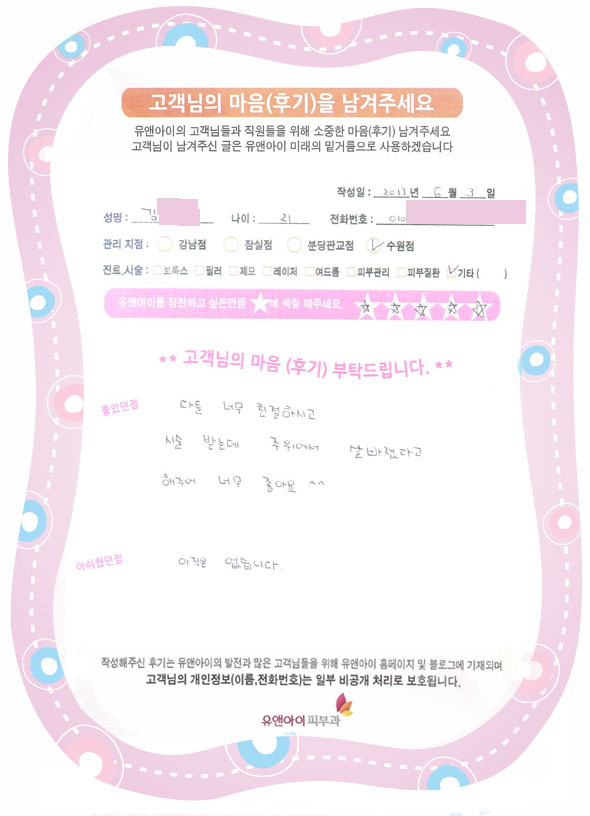 고객님의 마음(후기)을 남겨주세요
유앤아이의 고객님들과 직원들을 위해 소중한 마음(후기) 남겨주세요
고객님이 남겨주신 글은 유앤아이 미래의 밑거름으로 사용하겠습니다
작성일 : 2013 년 6 월 3 일
성명 : 김 나이 : 21 전화번호 : 010
관리 지점 : 강남점 잠실점 분당판교점 수원점
진료,시술 : 보톡스 필러 제모 레이저 여드름 피부관리 피부질환 기타 ( )
유앤아이를 칭찬하고 싶은만큼 ★에 색칠 해주세요.
** 고객님의 마음 (후기) 부탁드립니다. **
좋았던점 다들 너무 친절하시고
시술 받는데 주위에서 살빠졌다고
해주어 너무 좋아요 ^^
아쉬웠던점 아직은 없습니다.
작성해주신 후기는 유앤아이의 발전과 많은 고객님들을 위해 유앤아이 홈페이지 및 블로그에 기재되며
고객님의 개인정보(이름,전화번호)는 일부 비공개 처리로 보호됩니다.
유앤아이 피부과